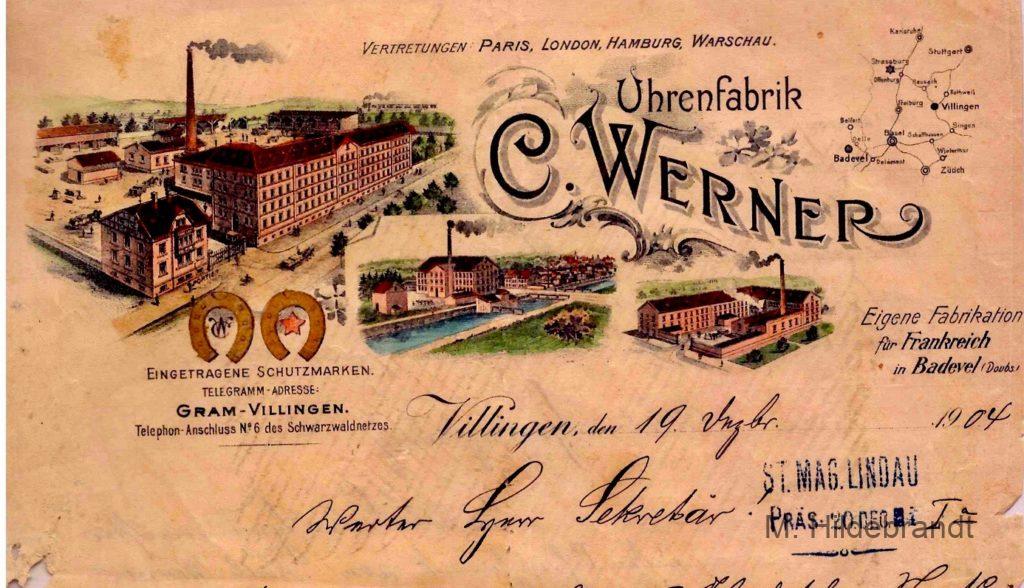 VERTRETUNGEN: PARIS, LONDON, HAMBURG, WARSCHAU.
Uhrenfabrik
C. WERNER
Karlsruhe
Stuttgart
Strassburg
Offenburg
Hausach
Rottweil
Villingen
Freiburg
Singen
Belfort
Delle
Basel
Schaffhausen
Badevel
Delemont
Winterthur
Zürich
Eigene Fabrikation
für Frankreich
in Badevel (Doubs)
EINGETRAGENE SCHUTZMARKEN.
TELEGRAMM-ADRESSE:
GRAM-VILLINGEN.
Telephon-Anschluss No 6 des Schwarzwaldnetzes.
Villingen, den 19. Dezbr. 1904
ST. MAG. LINDAU
PRÄS. 20 DEC
Werter Herr Sekretär
M. Hildebrandt